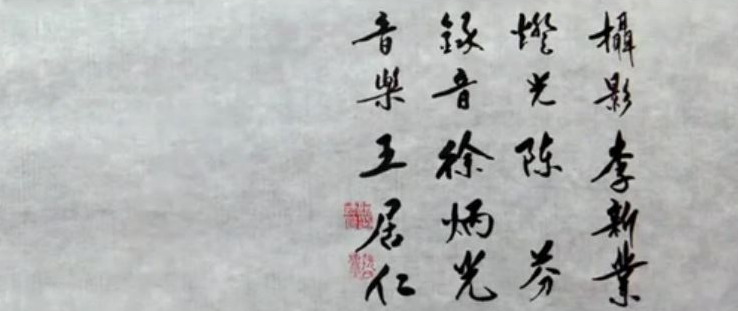 攝影 李新業
燈光 陳 芬
錄音 徐炳光
音樂 王居仁